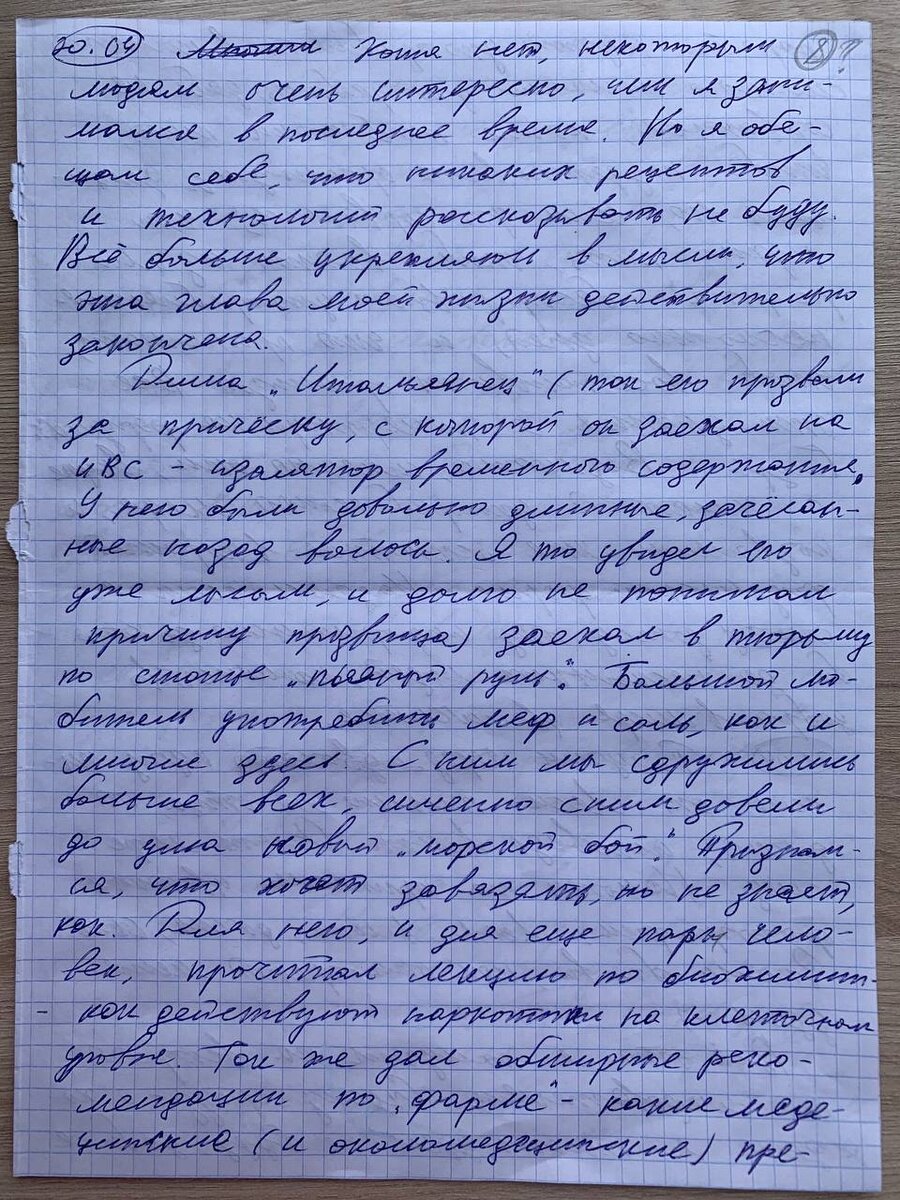 20.04 Многим Хотя нет, некоторым 8?
людям очень интересно, чем я зани-
мался в последнее время. Но я обе-
щал себе, что никаких рецептов
и технологий рассказывать не буду.
Всё больше укрепляюсь в мысли, что
эта глава моей жизни действительно
закончена.
Дима „Итальянец" (так его прозвали
за причёску, с которой он заехал на
ИВС - изолятор временного содержания.
У него были довольно длинные, зачёсан-
ные назад волосы. Я то увидел его
уже лысым, и долго не понимал
причину прозвища) заехал в тюрьму
по статье „пьяный руль". Большой лю-
битель употребить меф и соль, как и
многие здесь. С ним мы сдружились
больше всех, именно с ним довели
до ума новый „морской бой". Признал-
ся, что хочет завязать, но не знает,
как. Для него, и для еще пары чело-
век, прочитал лекцию по биохимии-
- как действуют наркотики на клеточном
уровне. Так же дал обширные реко-
мендации по „фарме" - какие меде-
цинские (и околомедецинские) пре-